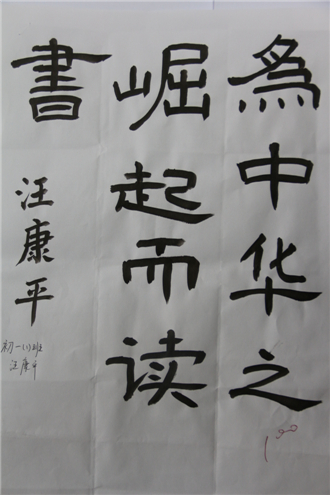 為中华之
崛起而读
書
汪康平
初一(1)班
汪康平
100